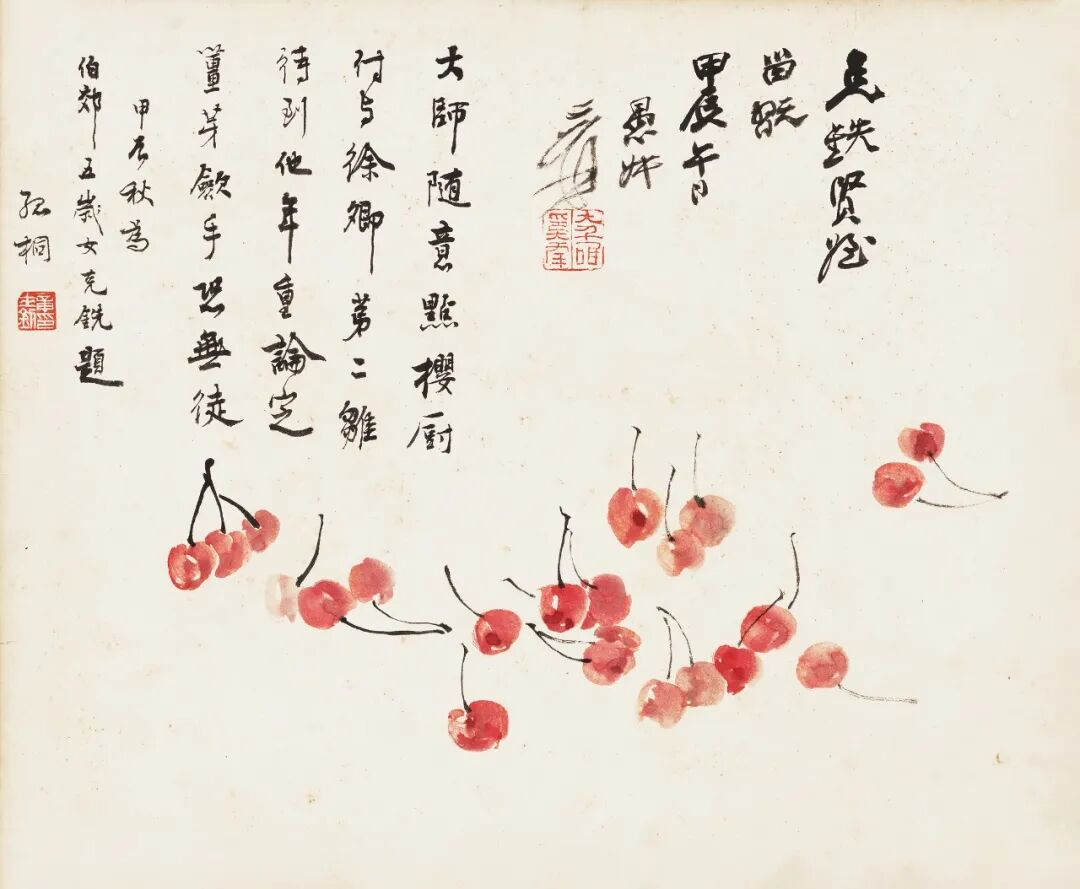 克銑賢姪
留翫
甲辰午日
愚叔
爰
大師隨意點櫻厨
付与徐卿第二雛
待到他年重論定
薑芽歛手恐無徒
甲辰秋為
伯郊五歲女克銑題
孤桐